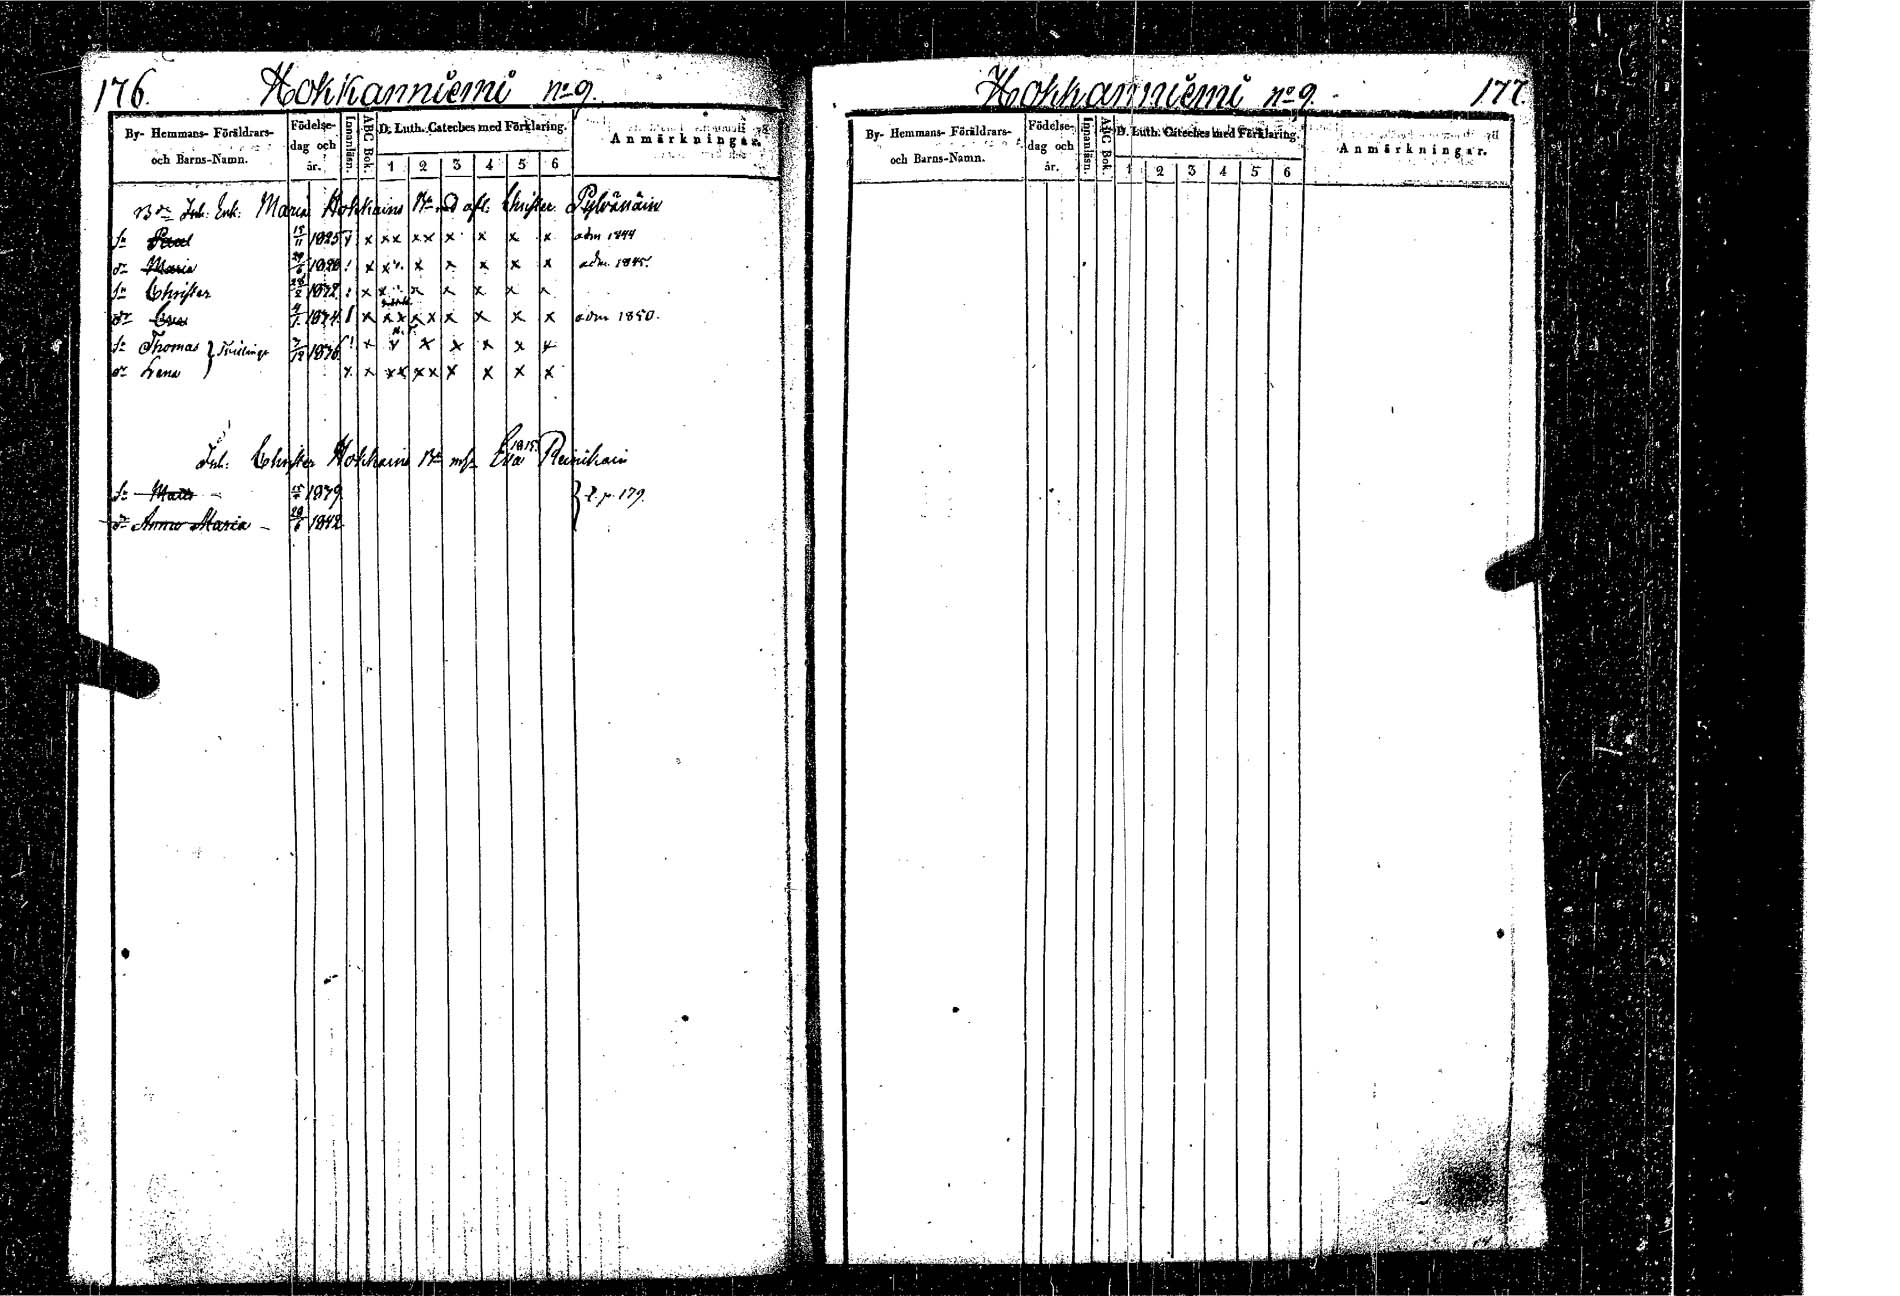 176. Hokkanniemi no 9.
By- Hemmans- Föräldrars- och Barns-Namn.
Födelse- dag och år.
Innanläsn.
ABC Bok.
D. Luth. Cateches med Förklaring.
1 2 3 4 5 6
Anmärkningar.
Inh: Enk: Maria Hokkain med afl: Christer Pylvänäin
sn Paul 1825 x xx xx x x x x adm 1844
dr Maria x x x x x x adm. 1845.
sn Christer 1832 x x x x x x
dr Eva 1834 x xx xx x x x x adm 1850.
sn Thomas } Tvillingar 7/12 1836 x x x x x x
dr Lena x x xx xx x x x x
Inh: Christer Hokkain Eva 1815 Reinikain
sn Matts 1839 } p. 179.
dr Anna Maria 1842
Hokkanniemi no 9. 177.
By- Hemmans- Föräldrars- och Barns-Namn.
Födelse- dag och år.
Innanläsn.
ABC Bok.
D. Luth. Cateches med Förklaring.
1 2 3 4 5 6
Anmärkningar.